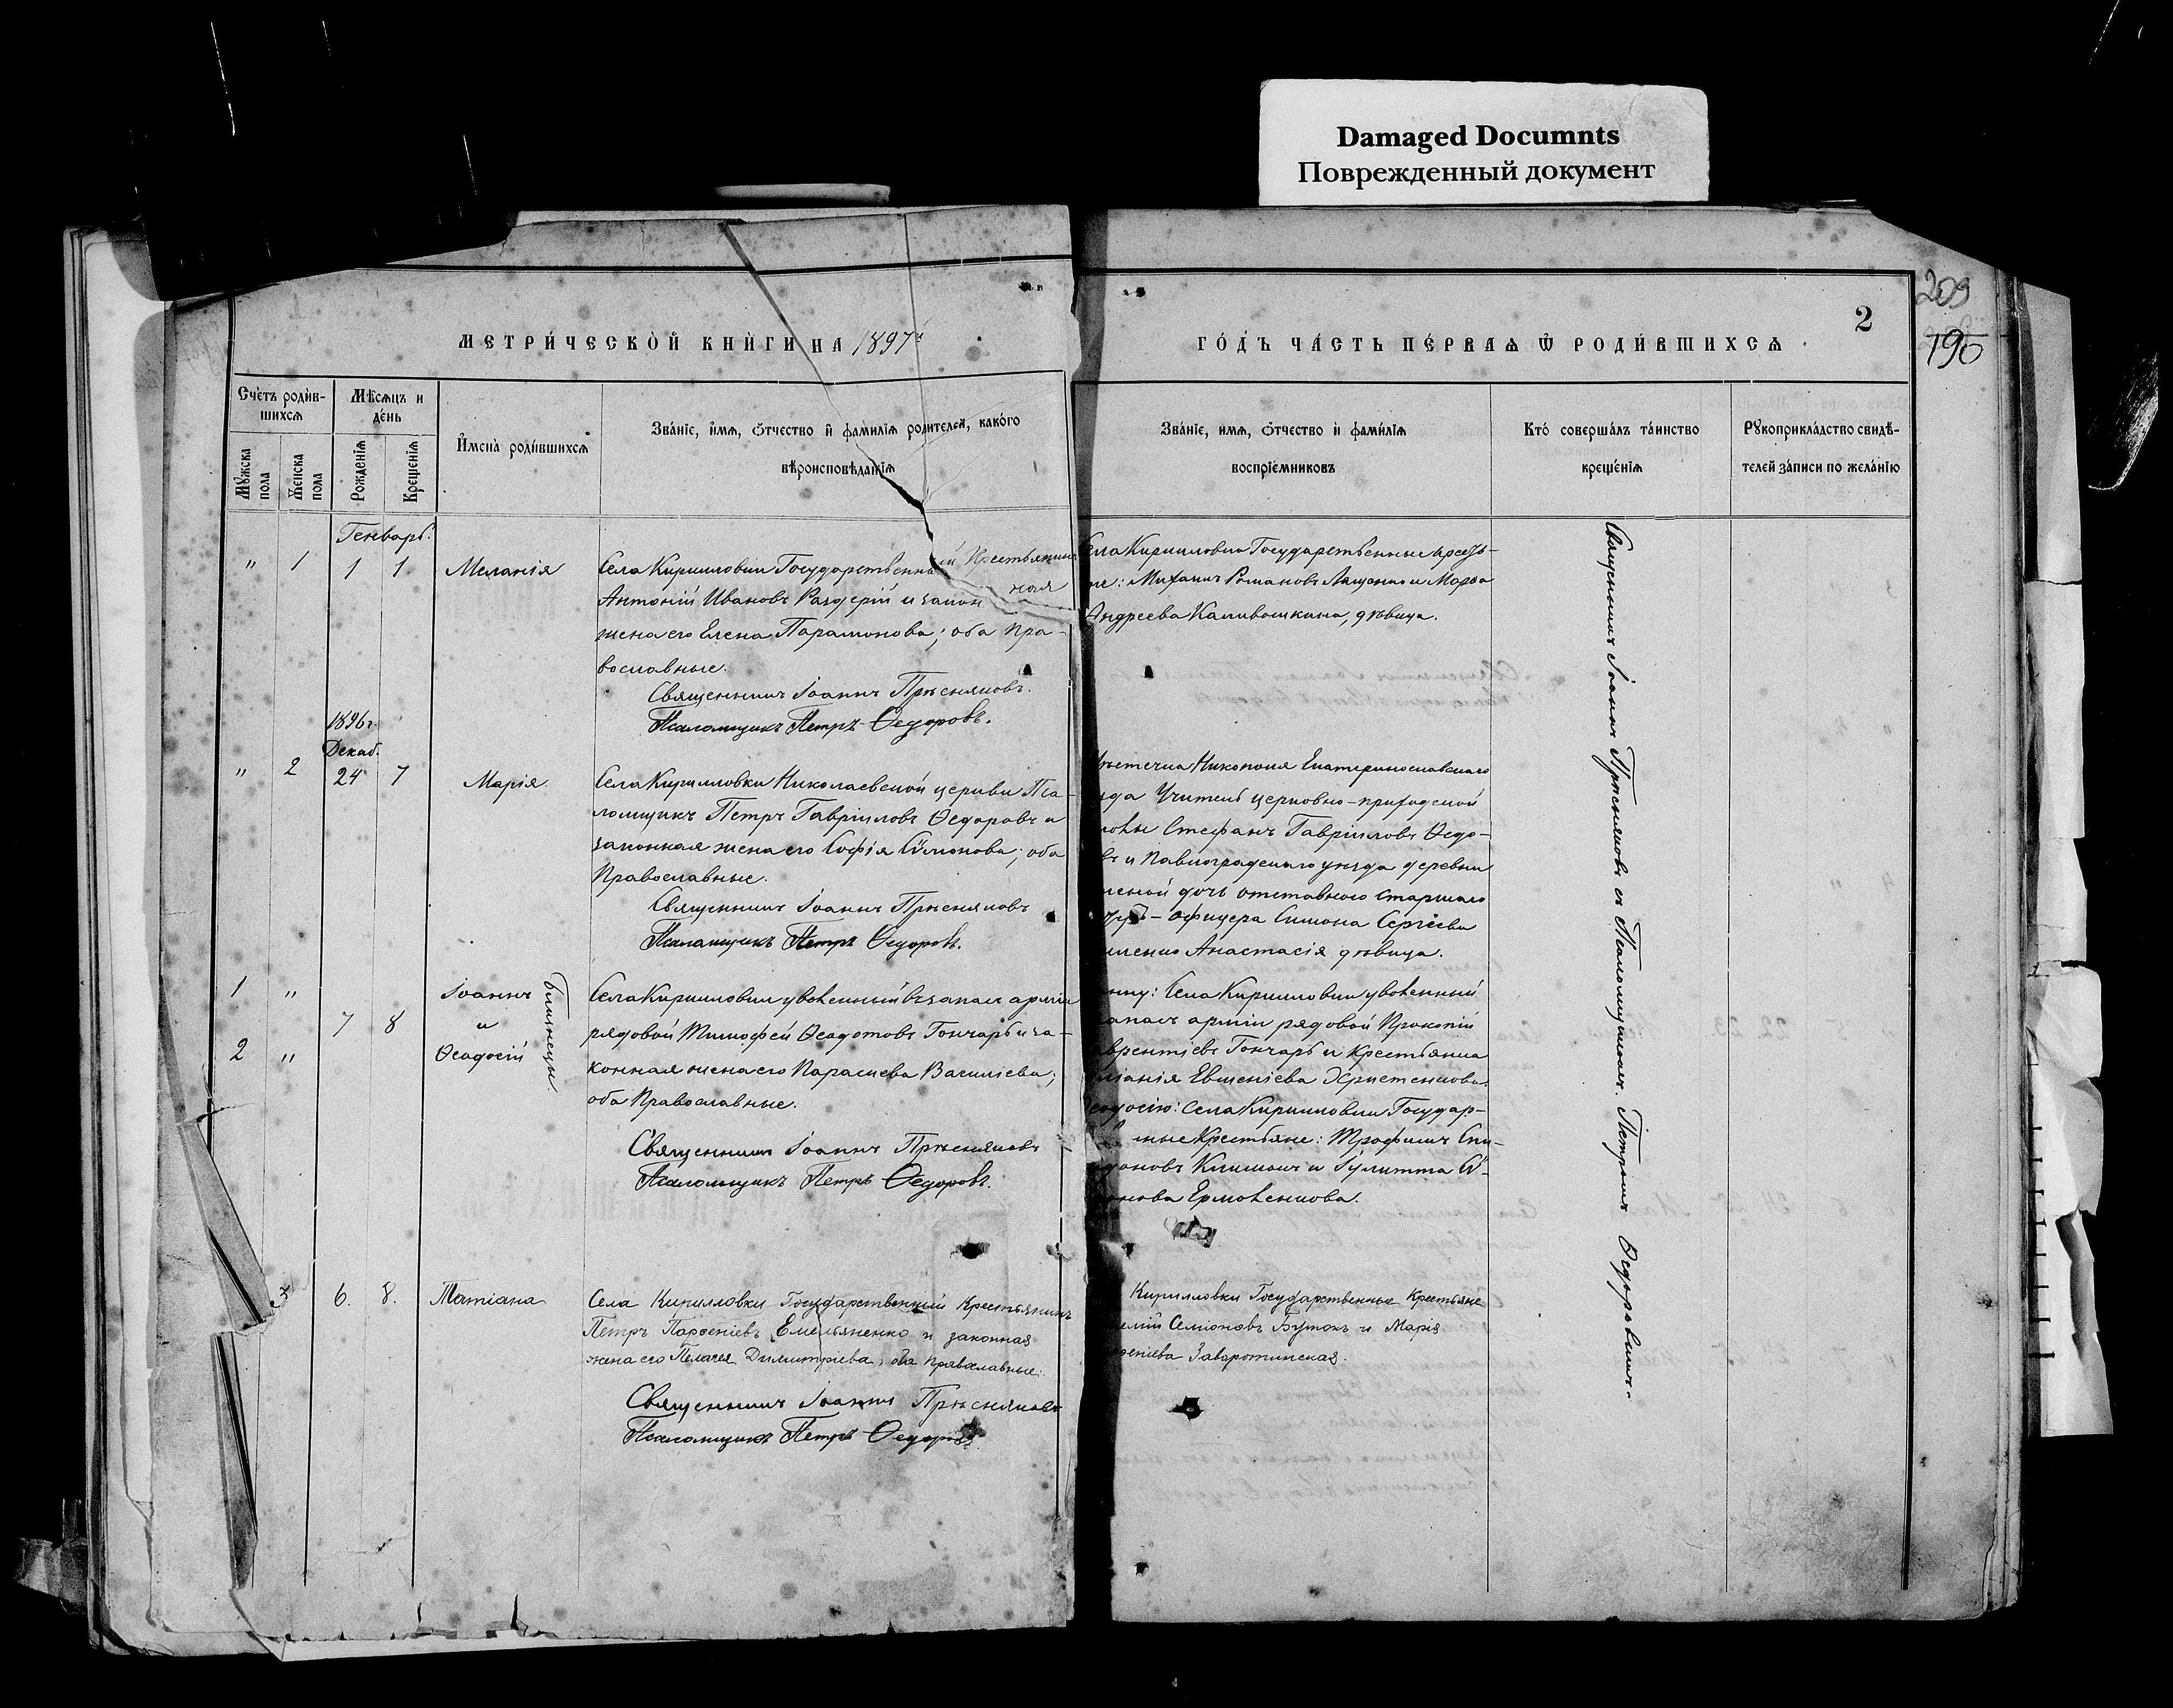 Damaged Documnts
Поврежденный документ
209
190
2
МЕТРИ́ЧЕСКОЙ КНИ́ГИ НА 1897й
ГО́ДЪ ЧА́СТЬ ПЕ́РВАѦ Ѽ РОДИ́ВШИХСѦ
Сче́тъ роди́в-
шихсѧ
Мѣ́сѧцъ и
де́нь
Мꙋжска пола
Женска пола
Рожденїѧ
Крещенїѧ
И҆мена̀ роди́вшихсѧ
Зва́нїе, и҆́мѧ, ѻ҆́тчество и҆ фами́лїѧ роди́телей, како́го
вѣроисповѣ́данїѧ
Зва́нїе, и҆́мѧ, ѻ҆́тчество и҆ фами́лїѧ
воспрїе́мниковъ
Кто́ соверша́лъ та́инство
креще́нїѧ
Рꙋкоприкла́дство свидѣ́-
телей за́писи по жела́нїю
Генварь.
" 1 1 1 Меланія
Села Кирилловки Государственный Крестьянинъ
Антоній Ивановъ и законная
жена его Елена Парамонова; оба Пра-
вославные.
Священникъ Іоаннъ Прѣсняковъ.
Псаломщикъ Петръ Ѳедоровъ.
Села Кирилловки Государственные
Михаилъ Романовъ Лященко и Марѳа
Андреева Каливошкина, дѣвица.
1896г.
Декаб.
" 2 24 7 Марія
Села Кирилловки Николаевской церкви Пса-
ломщикъ Петръ Гавріиловъ Ѳедоровъ и
законная жена его Софія Сѵмонова; оба
Православные.
Священникъ Іоаннъ Прѣсняковъ
Псаломщикъ Петръ Ѳедоровъ.
Никополя Екатеринославскаго
Учитель церковно-приходской
Стефанъ Гавріиловъ Ѳедо-
въ и Павлоградскаго уѣзда деревни
дочь отставного старшаго
офицера Симона Сергѣева
Анастасія дѣвица.
1 " Іоаннъ
и
7 8
2 " Ѳеодосій
близнецы
Села Кирилловки уволенный въ запасъ арміи
рядовой Тимофей Ѳеодотовъ Гончаръ и за-
конная жена его Параскева Василіева;
оба Православные.
Священникъ Іоаннъ Прѣсняковъ
Псаломщикъ Петръ Ѳедоровъ.
Села Кирилловки уволенный
арміи рядовой Прокопій
Гончаръ и крестьянка
Евгеніева
Села Кирилловки Государ-
ные Крестьяне: Трофимъ Спи-
Климонъ и Іулитта Сѵ-
Ермоленкова.
3 6. 8. Татіана
Села Кирилловки Государственный Крестьянинъ
Петръ Парѳеніевъ Емельяненко и законная
жена его Пелагея Димитріева, оба православные.
Священникъ Іоаннъ Прѣсняковъ
Псаломщикъ Петръ Ѳедоровъ.
Кирилловки Государственные Крестьяне
Семіоновъ Бутокъ и Марія
Заворотинская.
Священникъ Іоаннъ Прѣсняковъ съ Псаломщикомъ Петромъ Ѳедоровымъ.